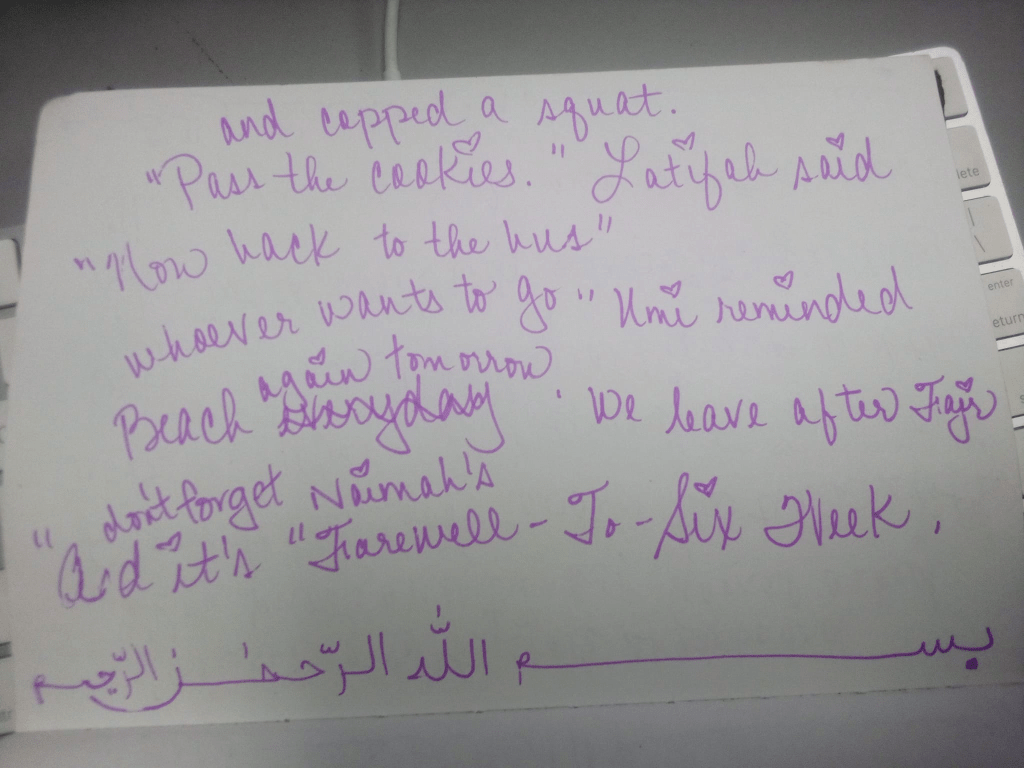 and copped a squat.
"Pass the cookies." Latifah said
"Now back to the bus"
whoever wants to go" Umi reminded
again tomorrow
Beach everyday. We leave after Fajr
" don't forget Naimah's
And it's "Farewell-To-Six Week,
بسم الله الرّحمٰن الرّحيم
lete
|
\
enter
return